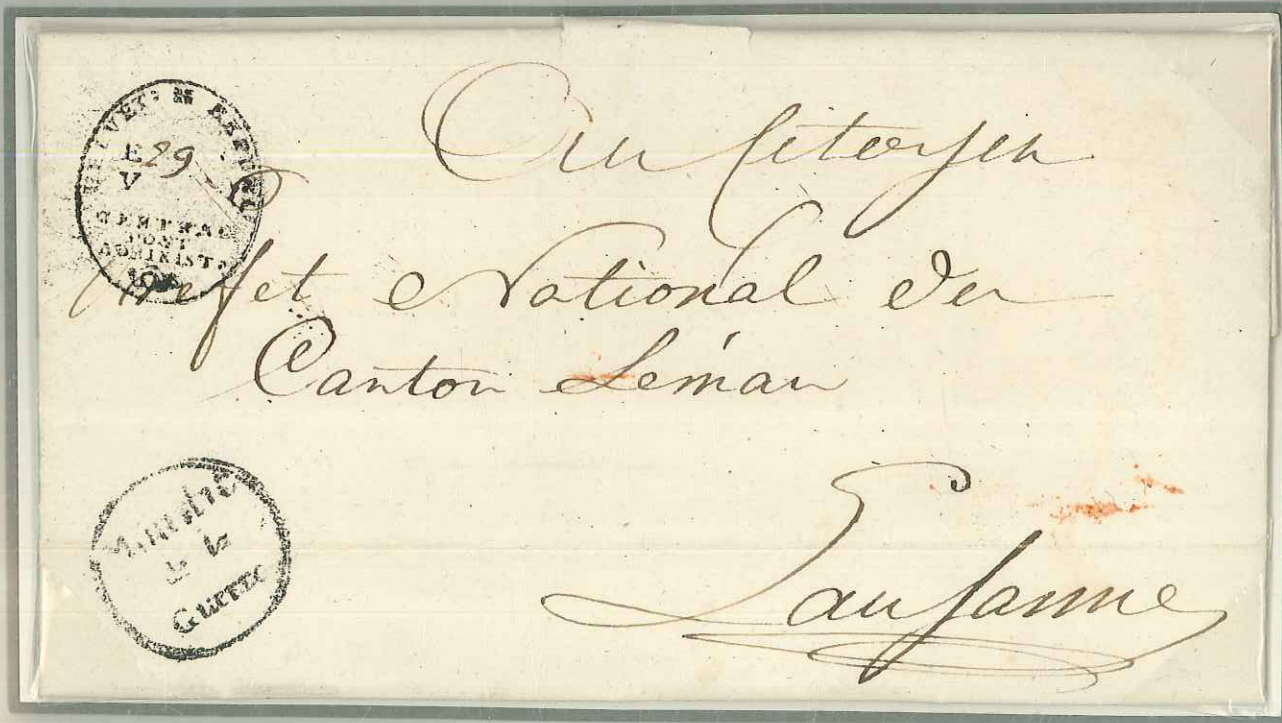 HELVET: REPUBL
E 29
V
CENTRAL
POST
ADMINIST:
Au Citoyen
Prefet National du
Canton Léman
Lausanne
Ministre
de la
Guerre